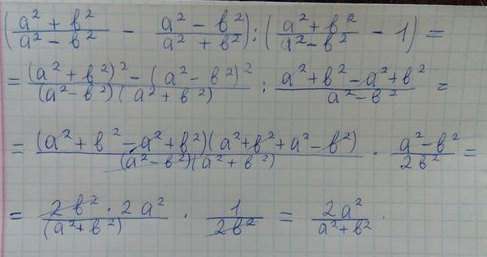 (a² + b²)/(a² - b²) - (a² - b²)/(a² + b²)) : ((a² + b²)/(a² - b²) - 1) =
= ((a² + b²)² - (a² - b²)²)/((a² - b²)(a² + b²)) : (a² + b² - a² + b²)/(a² - b²) =
= ((a² + b² - a² + b²)(a² + b² + a² - b²))/((a² - b²)(a² + b²)) · (a² - b²)/(2b²) =
= (2b² · 2a²)/((a² + b²)) · 1/(2b²) = (2a²)/(a² + b²).